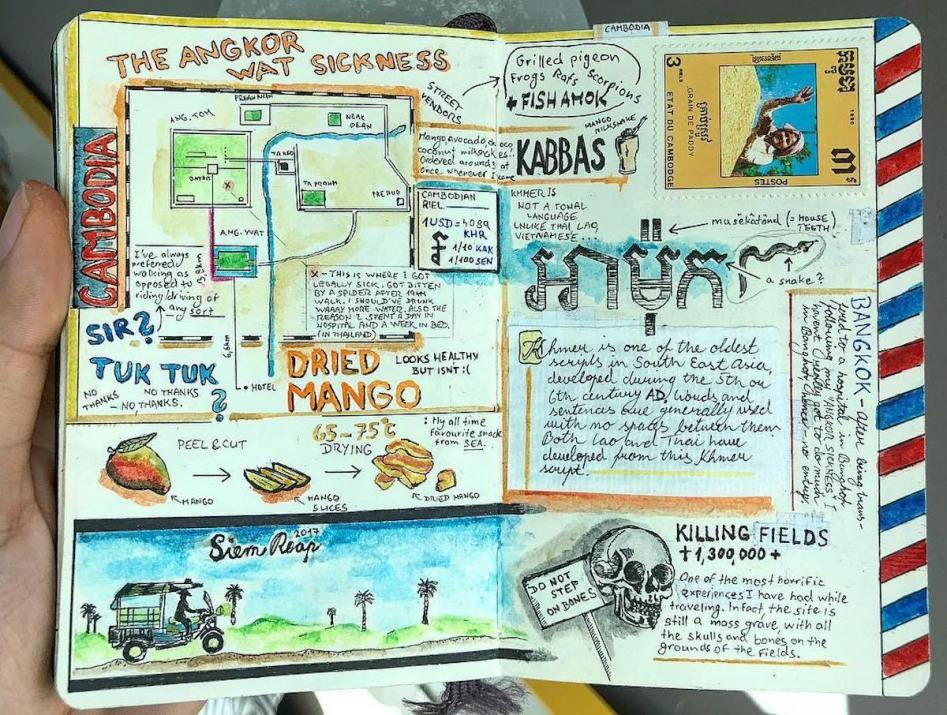 THE ANGKOR
WAT SICKNESS
CAMBODIA
PREAH NEAK
NEAK
PEAN
ANG. TOM
BAYON
TA KEO
TA PROUM
PRE RUP
ANG. WAT
I've always
preferred
walking as
opposed to
riding/driving of
any sort
X - THIS IS WHERE I GOT
LEGALLY SICK. GOT BITTEN
BY A SPIDER AFTER 19KM
WALK. I SHOULD'VE DRUNK
WAAAY MORE WATER. ALSO THE
REASON I SPENT A DAY IN
HOSPITAL AND A WEEK IN BED.
(IN THAILAND)
SIR?
TUK TUK
?
NO THANKS
NO THANKS
- NO, THANKS.
6,6km
HOTEL
DRIED
MANGO
LOOKS HEALTHY
BUT ISNT :(
PEEL & CUT
65-75°C
DRYING
: My all time
favourite snack
from SEA.
MANGO
MANGO
SLICES
DRIED MANGO
Siem Reap
2017
STREET
VENDORS
Grilled pigeon
Frogs Rats Scorpions
+ FISH AMOK
Mango, avocado, choco,
coconut milkshakes..
ordered around 4 at
once whenever I came
MANGO
MILKSHAKE
KABBAS
CAMBODIAN
RIEL
1USD = 4089
KHR
1/10 KAK
1/100 SEN
KHMER IS
NOT A TONAL
LANGUAGE
UNLIKE THAI, LAO,
VIETNAMESE...
អាម៉ុក
musĕkatŏnd (= HOUSE
TEETH)
a snake?
Khmer is one of the oldest
scripts in South East Asia,
developed during the 5th or
6th century AD, Words and
sentences are generally used
with no spaces between them
Both Lao and Thai have
developed from this Khmer
script.
CAMBODIA
3
RIELS
GRAIN DE PADDY
ETAT DU CAMBODGE
POSTES
1990
BANGKOK - After being trans-
fered to a hospital in Bangkok
following my "ANGKOR SICKNESS" I
havent really got to do much
in Bangkok. Hence - no entry.
KILLING FIELDS
+ 1,300,000 +
DO NOT
STEP
ON BONES
One of the most horrific
experiences I have had while
traveling. Infact, the site is
still a mass grave, with all
the skulls and bones on the
grounds of the Fields.